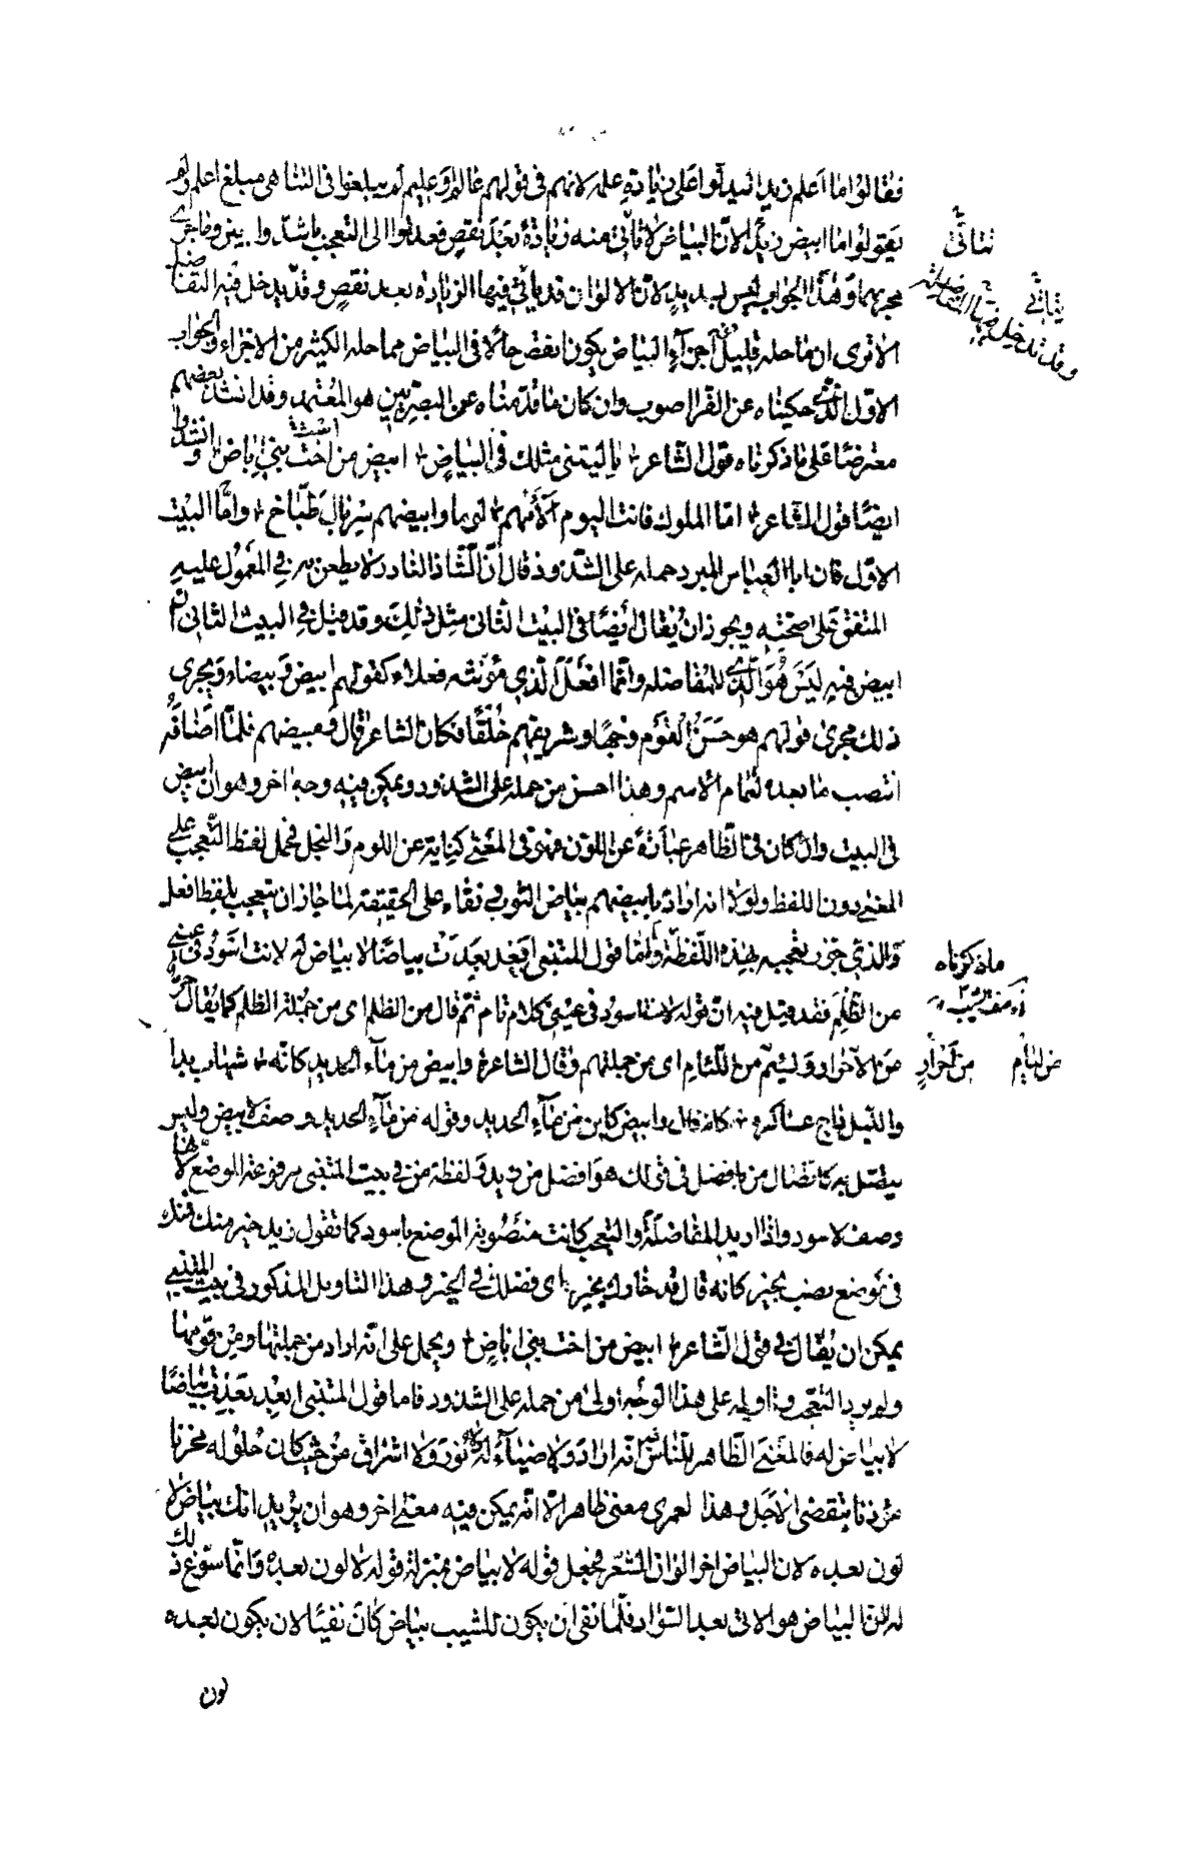 فقالوا ما اعلم زيدا ليدلوا على زيادة علمه لانهم فى قولهم عالم وعليم لم يبلغوا فى التناهى مبلغ اعلم ولم
يقولوا ما ابيض زيدا لانّ البياض لا تاتى منه زيادة بعد نقص فعدلوا الى التعجب باشدّ وابين وما جرى
مجريهما وهذا الجواب ليس بسديد لانّ الالوان قد ياتى فيها الزيادة بعد نقص وقد يدخل فيه التفاضل
الا ترى ان ما حله قليل من اجزآء البياض يكون انقص حالا فى البياض مما حله الكثير من الاجزاء والجواب
الاوّل الذى حكيناه عن الفرا اصوب وان كان ما قدمناه عن البصريين هو المعتمد وقد انشد بعضهم
معترضا على ما ذكرناه قول الشاعر يا ليتنى مثلك فى البياض ابيض من اخت بنى اباض وانشدوا
ايضا قول الشاعر امّا الملوك فانت اليوم الأمهم لؤما وابيضهم سربال طبّاخ وامّا البيت
الاوّل فان ابا العباس المبرد حمله على الشذوذ وقال انّ الشاذ النادر لا يطعن به فى المعمول عليه
المتفق على صحّته ويجوز ان يقال ايضا فى البيت الثانى مثل ذلك وقد قيل فى البيت الثانى انّ
ابيض فيه ليس هو الذى للمفاضلة وانّما افعل الذى مؤنثه فعلاء كقولهم ابيض وبيضاء ويجرى
ذلك مجرى قولهم هو حسن القوم وجها وشريفهم خلقا فكان الشاعر قال ومبيضهم فلمّا اضافه
انتصب ما بعده لتمام الاسم وهذا احسن من حمله على الشذوذ ويمكن فيه وجه اخر وهو ان ابيض
فى البيت وان كان فى الظاهر عبارة عن اللون فهو فى المعنى كناية عن اللوم والبخل فحمل لفظ التعجب على
المعنى دون اللفظ ولو لا انه اراد بابيضهم بياض الثوب ونقاءه على الحقيقة لما جاز ان يتعجب بلفظ افعل
والذى جوز تعجبه بهذه اللفظة وامّا قول المتنبى ابعد بعدت بياضا لا بياض له لانت اسود فى عينى
من الظلم فقد قيل فيه انّ قوله لانت اسود فى عينى كلام تام ثم قال من الظلم اى من جملة الظلم كما يقال حرّ
من الاحرار ولئيم من اللئام اى من جملتهم وقال الشاعر وابيض من مآء الحديد كانّه شهاب بدا
والليل داج عساكره كانه قال وابيض كاين من مآء الحديد وقوله من مآء الحديد وصف لابيض وليس
يتصل به كاتصال من بافضل فى قولك هو افضل من زيد ولفظة من فى بيت المتنبى مرفوعة الموضع لانها
وصف لاسود واذا اريد المفاضلة والتعجب كانت منصوبة الموضع باسود كما تقول زيد خير منك فمنك
فى موضع نصب بخير كانه قال قد خارك بخير اى فضلك فى الخير وهذا التاويل المذكور فى بيت المتنبى
يمكن ان يقال فى قول الشاعر ابيض من اخت بنى اباض ويحمل على انّه اراد من جملتها ومن قومها
ولم يرد التعجب وتاويله على هذا الوجه اولى من حمله على الشذوذ فاما قول المتنبى ابعد بعدت بياضا
لا بياض له فالمعنى الظاهر للناس فيه انه اراد لا ضيآء له ولا نور ولا اشراق من حيث كان حلوله محزنا
مؤذنا بتقضى الاجل وهذا لعمرى معنى ظاهر الا انّه يمكن فيه معنى اخر وهو ان يريد انك بياض لا
لون بعده لان البياض اخر الوان الشعر فجعل قوله لا بياض بمنزلة قوله لا لون بعده وانّما سوّغ ذلك
له انّ البياض هو الاتى بعد السواد فلمّا نفى ان يكون للشيب بياض كان نفيا لان يكون بعده
لون
تتاتّى
يتاتى
وقد تدخل فيها المفاضلة
ما ذكرناه
من احرار
من لئام